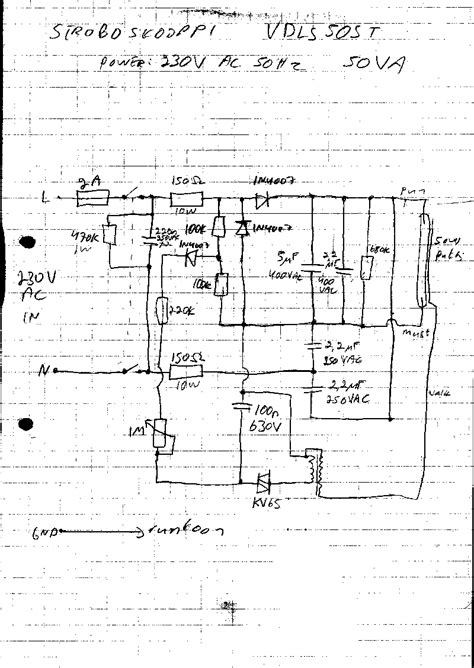 STROBOSKOOPPI VDLS50ST
POWER: 230V AC 50Hz 50VA
L 2A 150Ω 1N4007 pun
10W
470K 1W 220n 100k 1N4007
1N4007
5µF 400VAC 2,2 µF 400 VAC 680K
230V AC IN
100k
220k
must
2,2µF 250VAC
N 150Ω
10W
2,2µF 250VAC
1M
100n 630V
KV65
GND runkoon